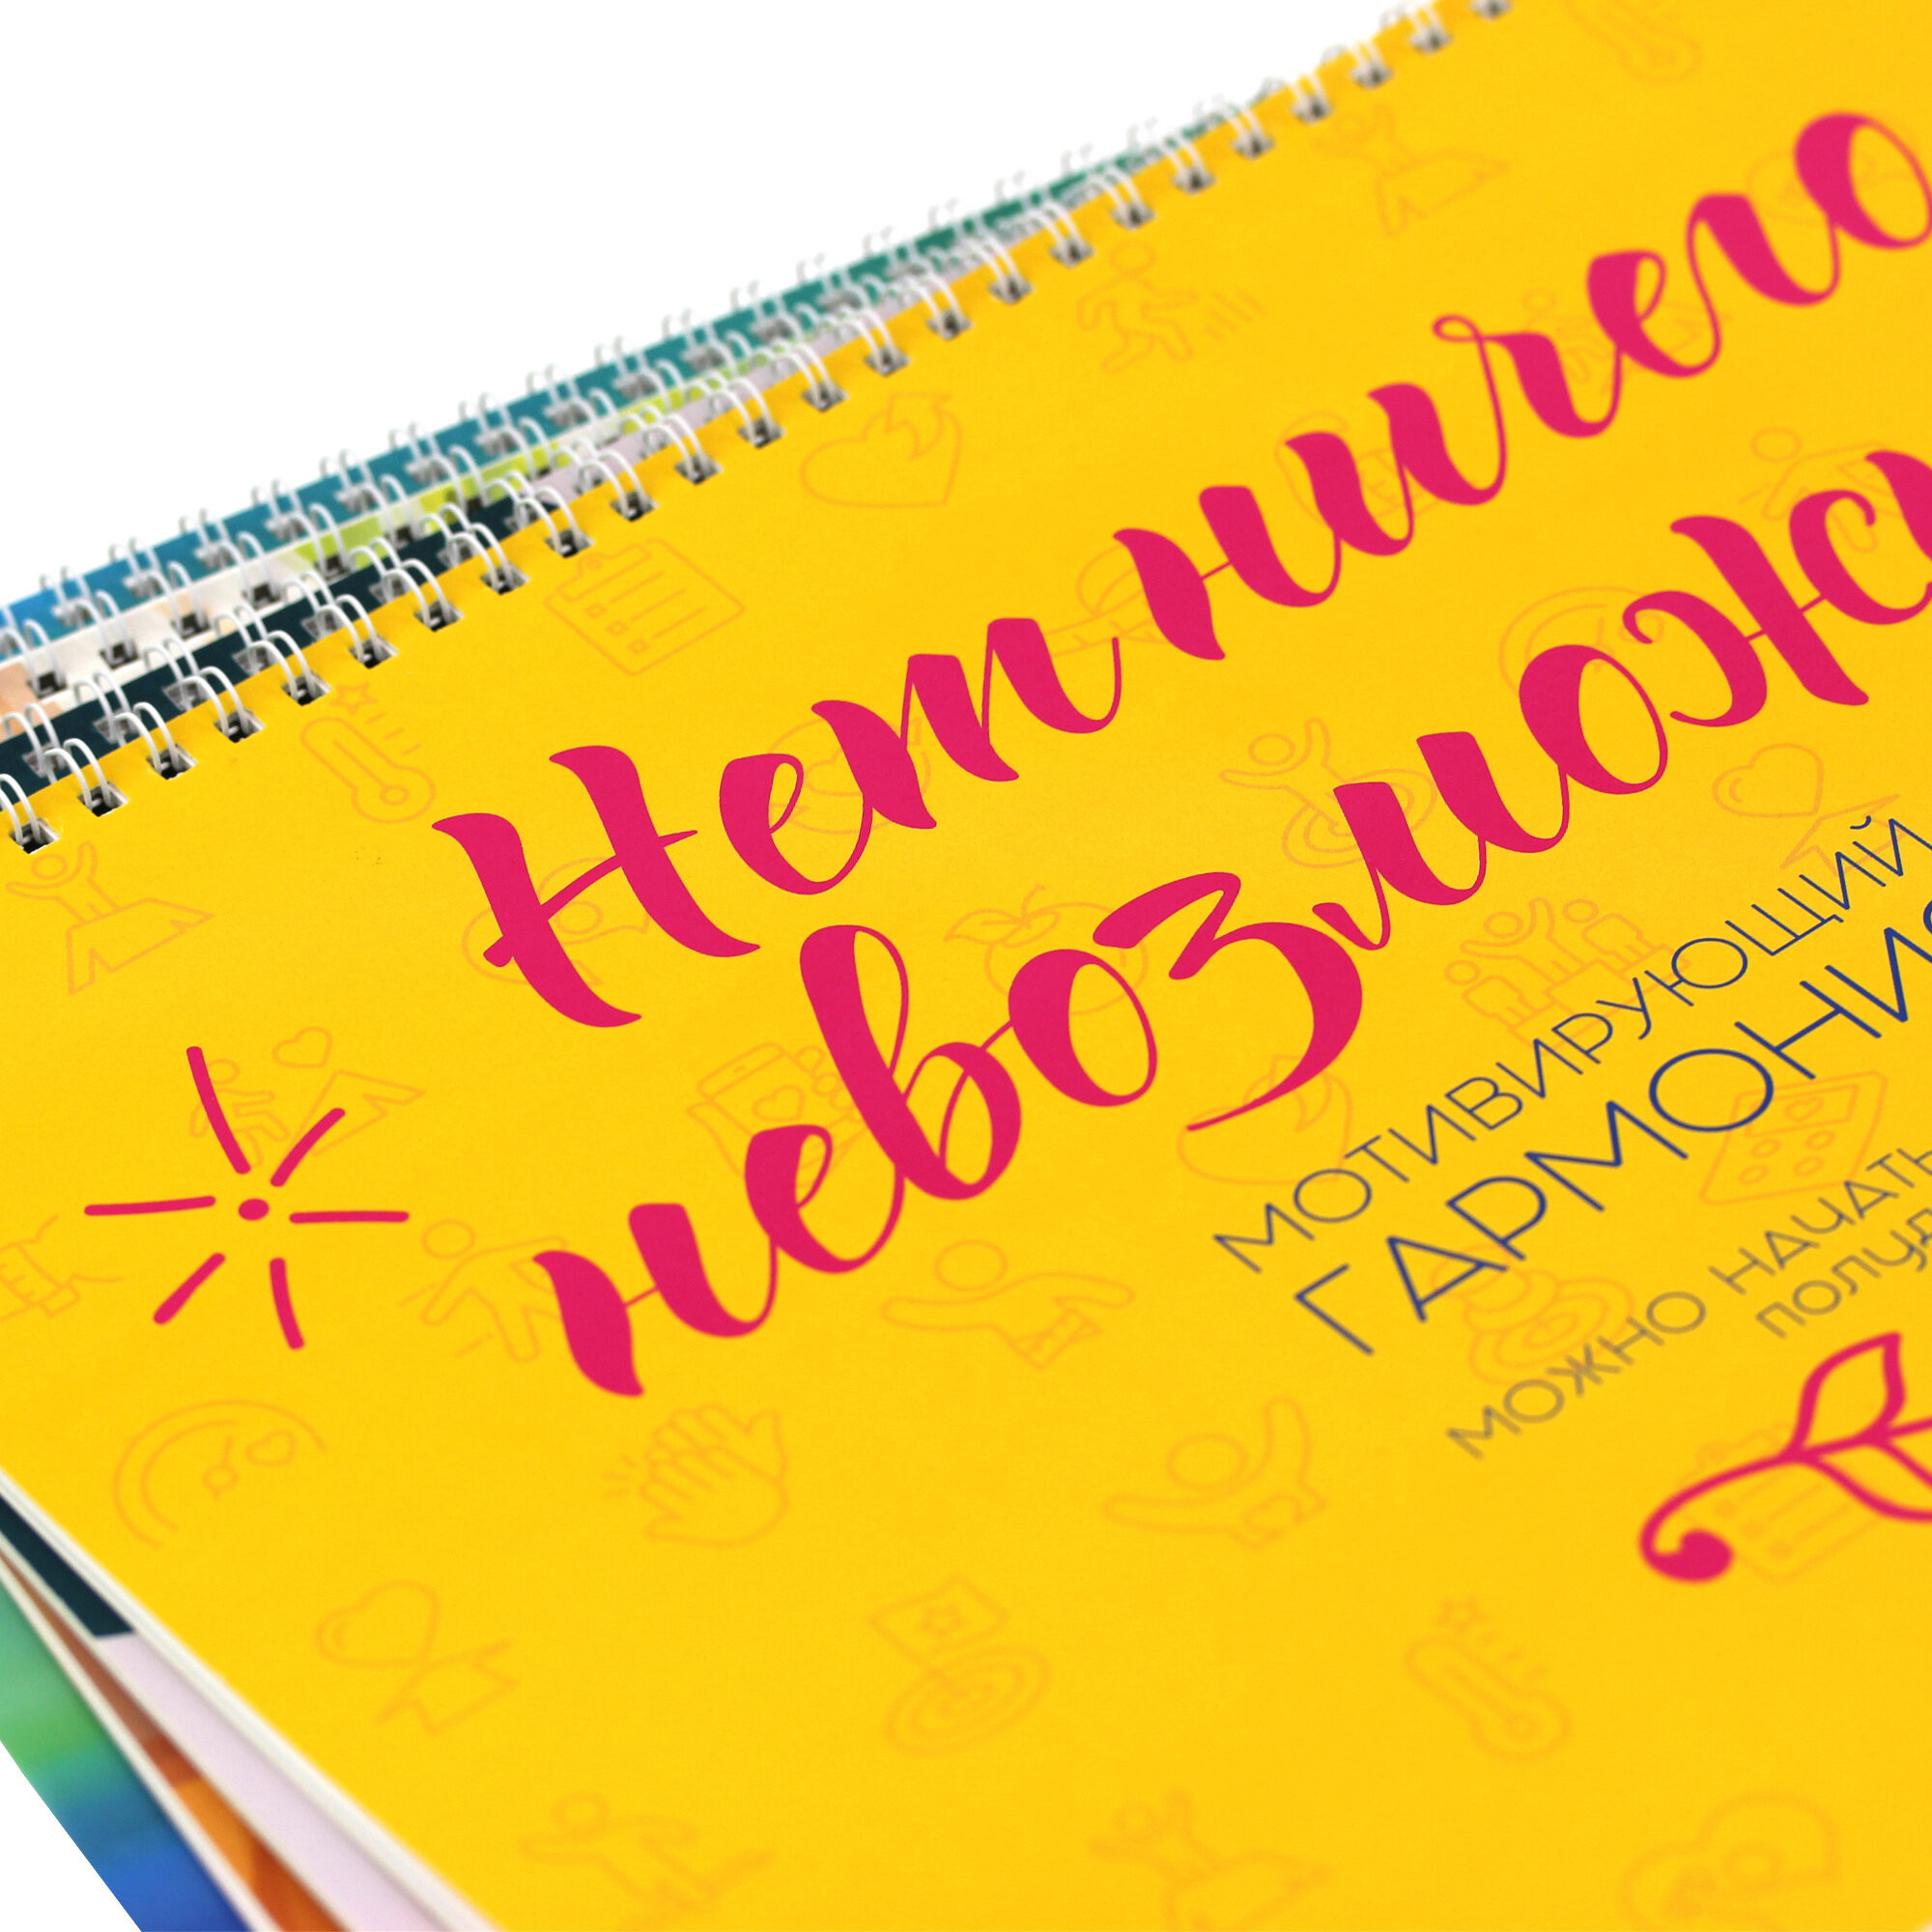 Нет ничего
невозмож
МОТИВИРУЮЩИЙ
ГАРМОНИ
МОЖНО НАЧАТЬ
ПОЛУД